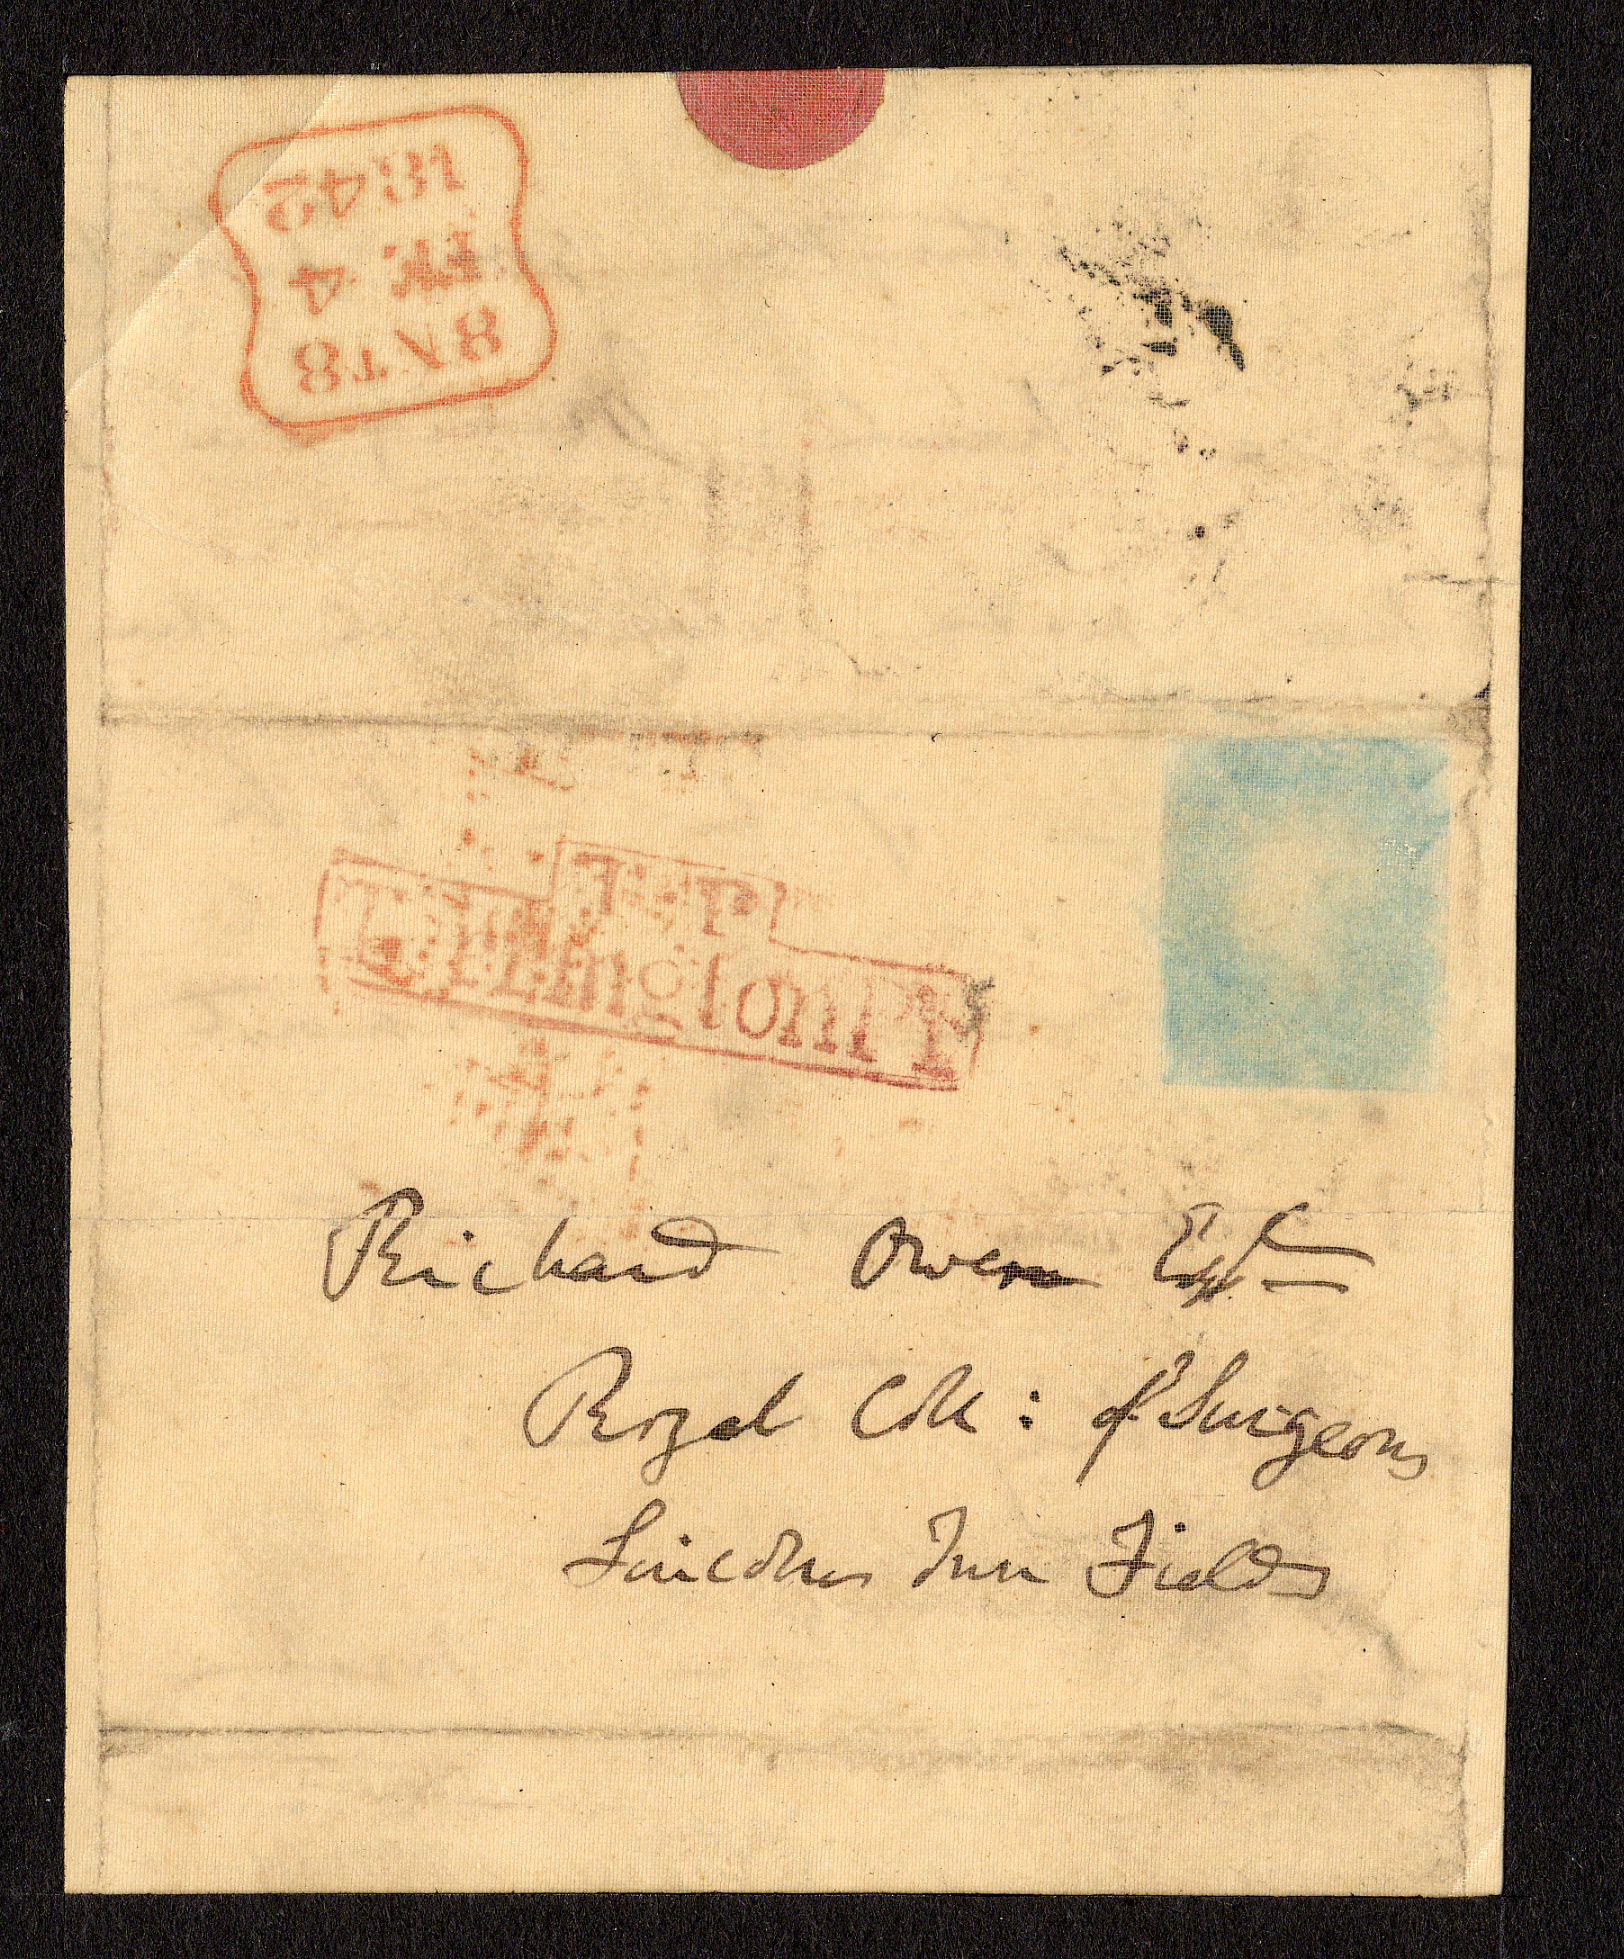 8 NT 8
4
1842
Richard Owen Esq
Royal Coll: of Surgeons
Lincolns Inn Fields